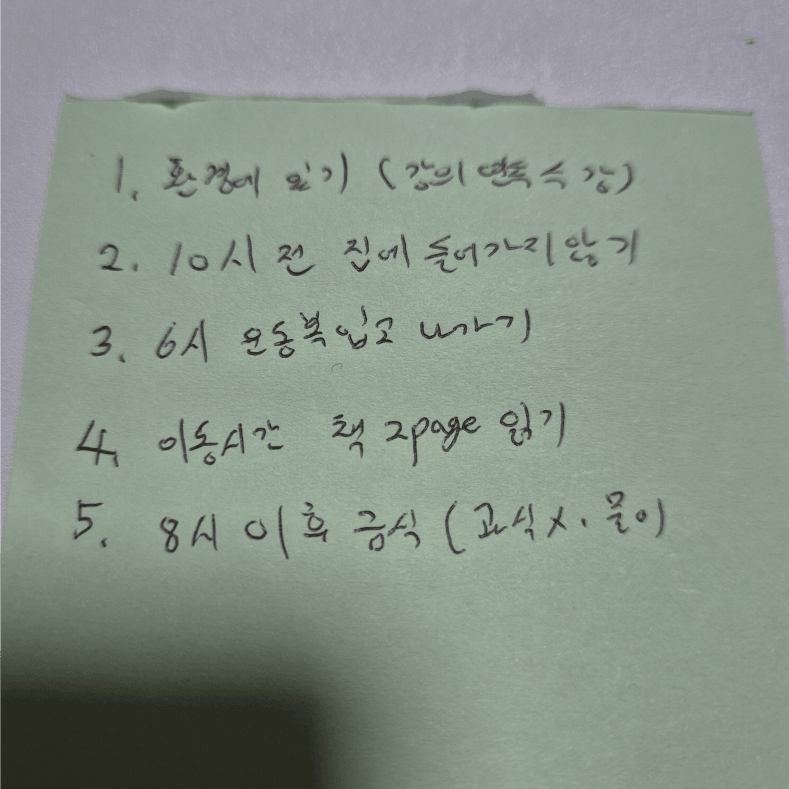 1. 환경에 있기 (강의 연독 수강)
2. 10시 전 집에 들어가지 않기
3. 6시 운동복 입고 나가기
4. 이동시간 책 2page 읽기
5. 8시 이후 금식 (과식X, 물O)